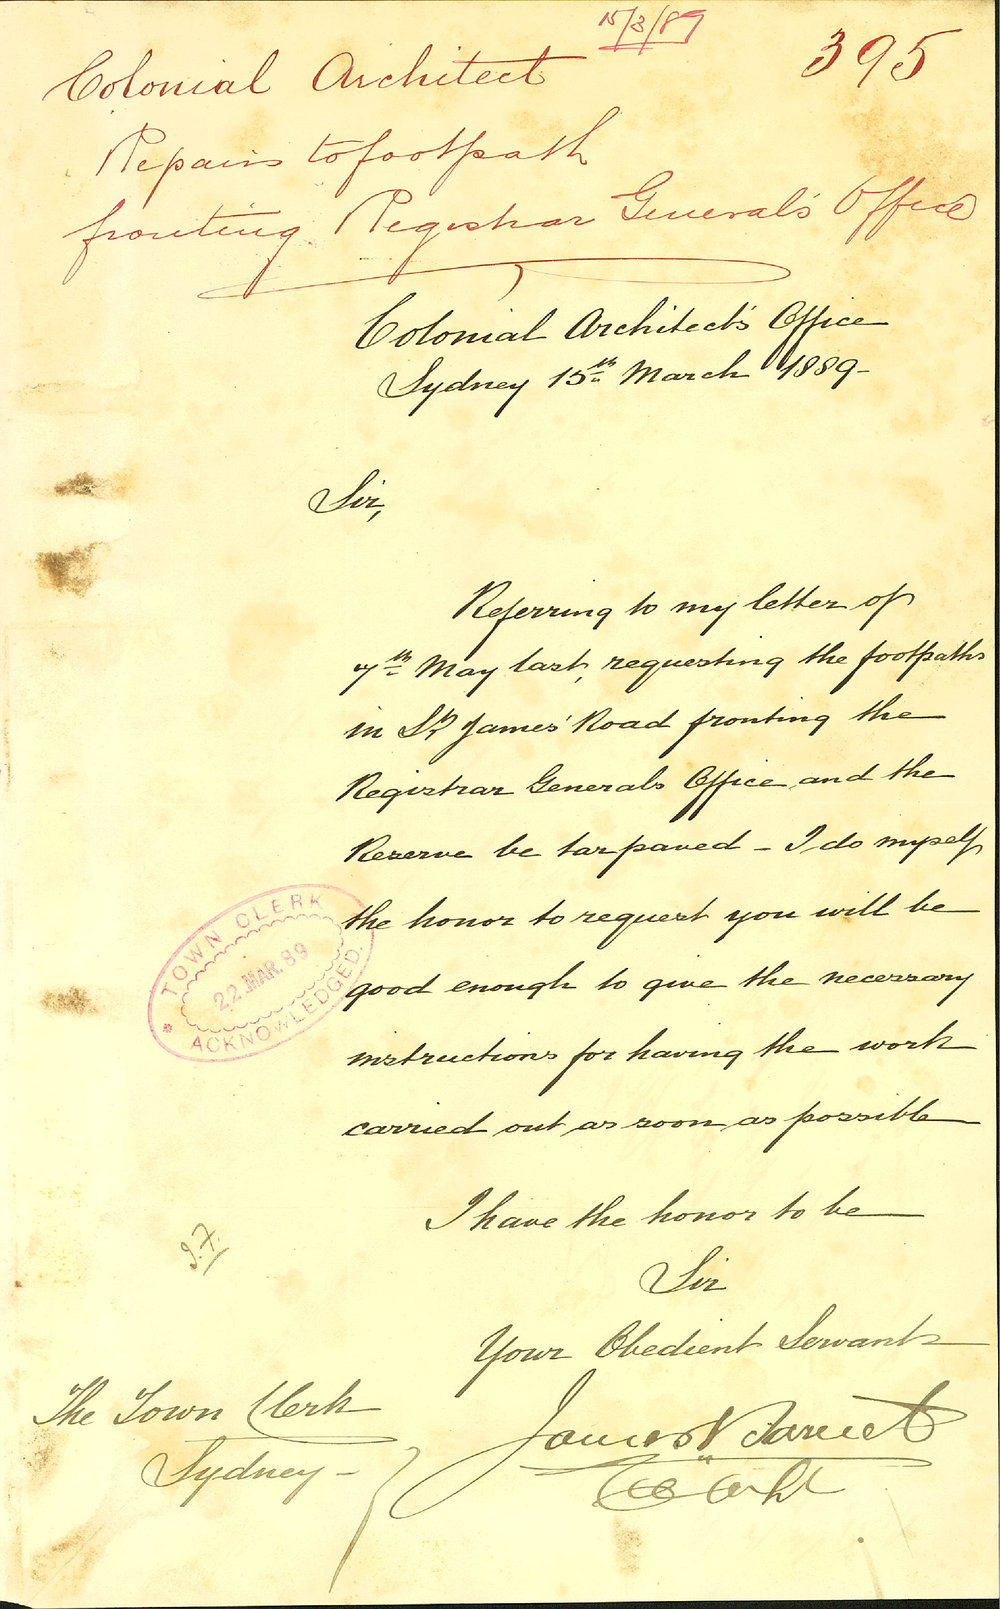 15/3/89
395
Colonial Architect
Repairs to footpath
fronting Registrar General's Office
Colonial Architect's Office
Sydney 15th March 1889-
Sir,
Referring to my letter of
7th May last, requesting the footpaths
in St James' Road fronting the
Registrar Generals Office and the
Reserve be tarpaved - I do myself
the honor to request you will be
good enough to give the necessary
instructions for having the work
carried out as soon as possible
TOWN CLERK
22 MAR 89
ACKNOWLEDGED.
I have the honor to be
Sir
Your Obedient Servant
James Barnet
Col Archt
The Town Clerk
Sydney -